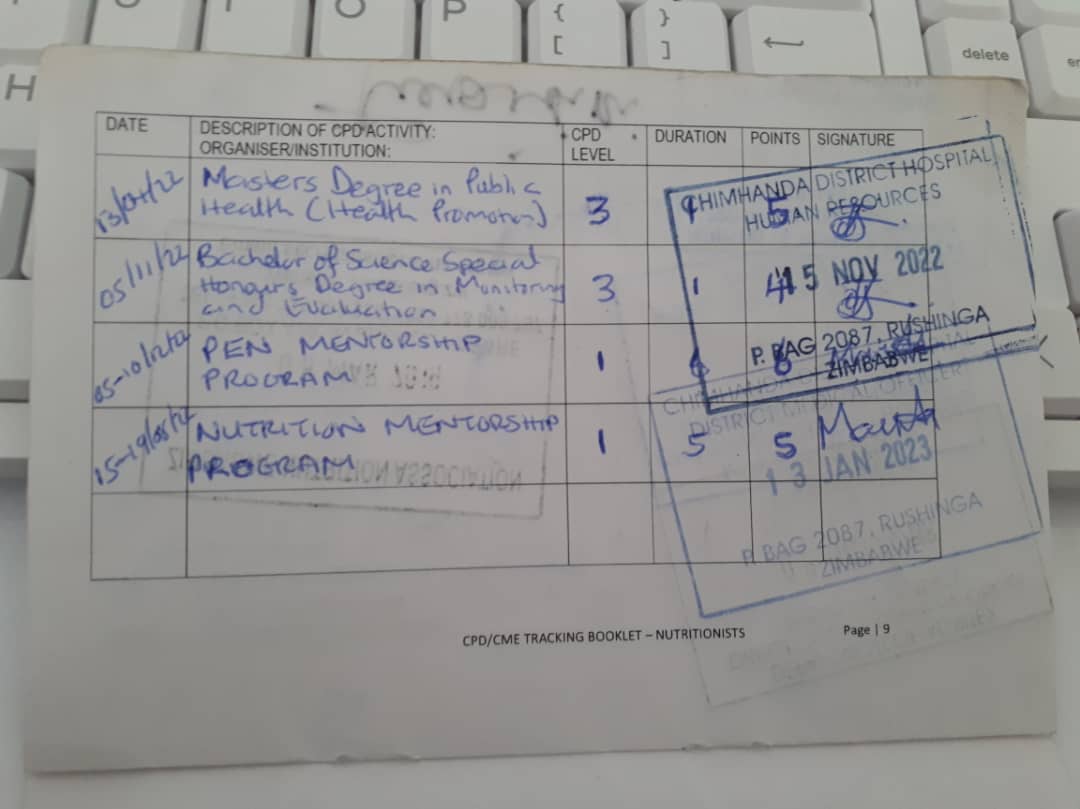 O P { }
[ ]
H
delete
DATE DESCRIPTION OF CPD ACTIVITY: CPD DURATION POINTS SIGNATURE
ORGANISER/INSTITUTION: LEVEL
13/04/22 Masters Degree in Public
Health (Health Promotion) 3 1 5
05/11/22 Bachelor of Science Special
Honours Degree in Monitoring 3 1 4
and Evaluation
05-10/12/22 PEN MENTORSHIP
PROGRAM 1 6 6
15-19/08/22 NUTRITION MENTORSHIP
PROGRAM 1 5 5
CHIMHANDA DISTRICT HOSPITAL
HUMAN RESOURCES
15 NOV 2022
P. BAG 2087, RUSHINGA
ZIMBABWE
DISTRICT MEDICAL OFFICER
13 JAN 2023
P. BAG 2087, RUSHINGA
ZIMBABWE
CPD/CME TRACKING BOOKLET – NUTRITIONISTS Page | 9